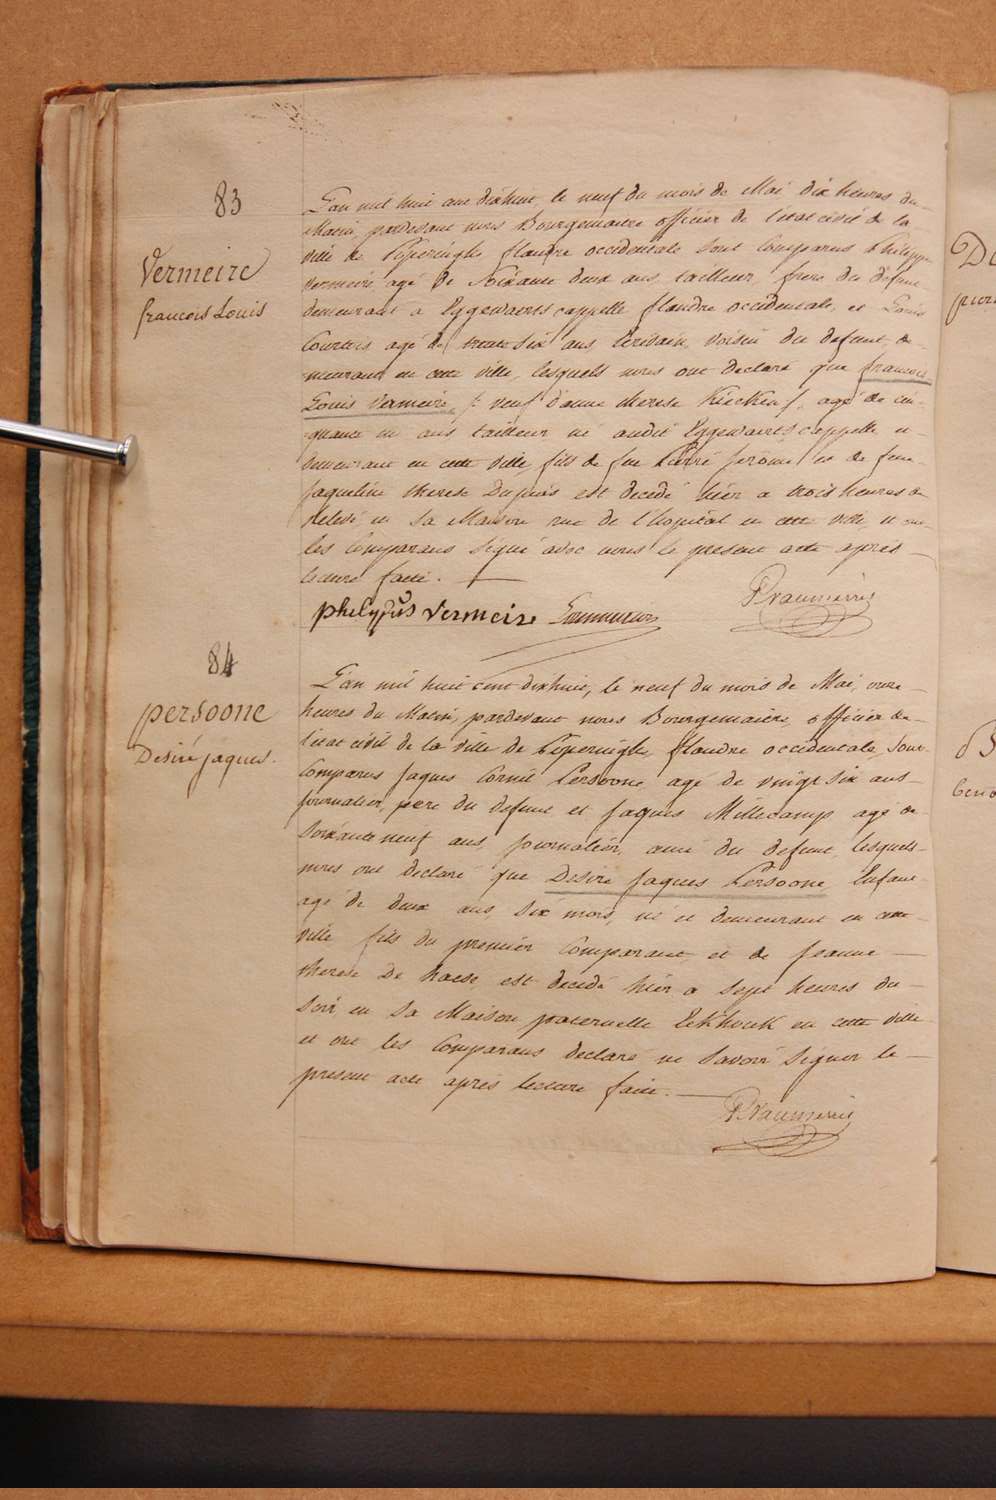 83
Vermeire
francois Louis
L'an mil huit cent dixhuit, le neuf du mois de Mai dix heures du
Matin, pardevant nous Bourgemaitre officier de l'etat civil de la
ville de Poperinghe flandre occidentale sont Comparus Philippe
Vermeire agé de Soixante deux ans tailleur, frere du defunt
demeurant a Eggewaerts cappelle flandre occidentale, et Louis
agé de trente six ans Ecrivain, voisin du defunt, de-
meurant en cette ville, lesquels nous ont declaré que francois
Louis Vermeire, /: veuf d'anne therese agé de cin-
quante un ans tailleur né audit Eggewaerts cappelle et
demeurant en cette ville, fils de feu Pierre jerome et de feue
jaqueline therese Dupuis est decedé hier a trois heures de
relevé en sa Maison rue de l'hopital en cette ville, et ont
les Comparans signé avec nous le present acte après
lecture faite.
phelyppus vermeire
84
persoone
Desiré jaques.
L'an mil huit cent dixhuit, le neuf du mois de Mai, onze
heures du Matin, pardevant nous Bourgemaitre, officier de
l'etat civil de la ville de Poperinghe, flandre occidentale, sont
Comparus jaques Cornil Persoone agé de vingt six ans
journalier, pere du defunt et jaques Millecamp agé de
soixante neuf ans, journalier, ami du defunt, lesquels
nous ont declaré que Desiré jaques Persoone, Enfant
agé de deux ans six mois, né et demeurant en cette
ville fils du premier Comparant et de jeanne
therese De haese est decedé hier a sept heures du
soir en sa Maison paternelle Eekhoek en cette ville
et ont les Comparans declaré ne savoir signer le
present acte après lecture faite.